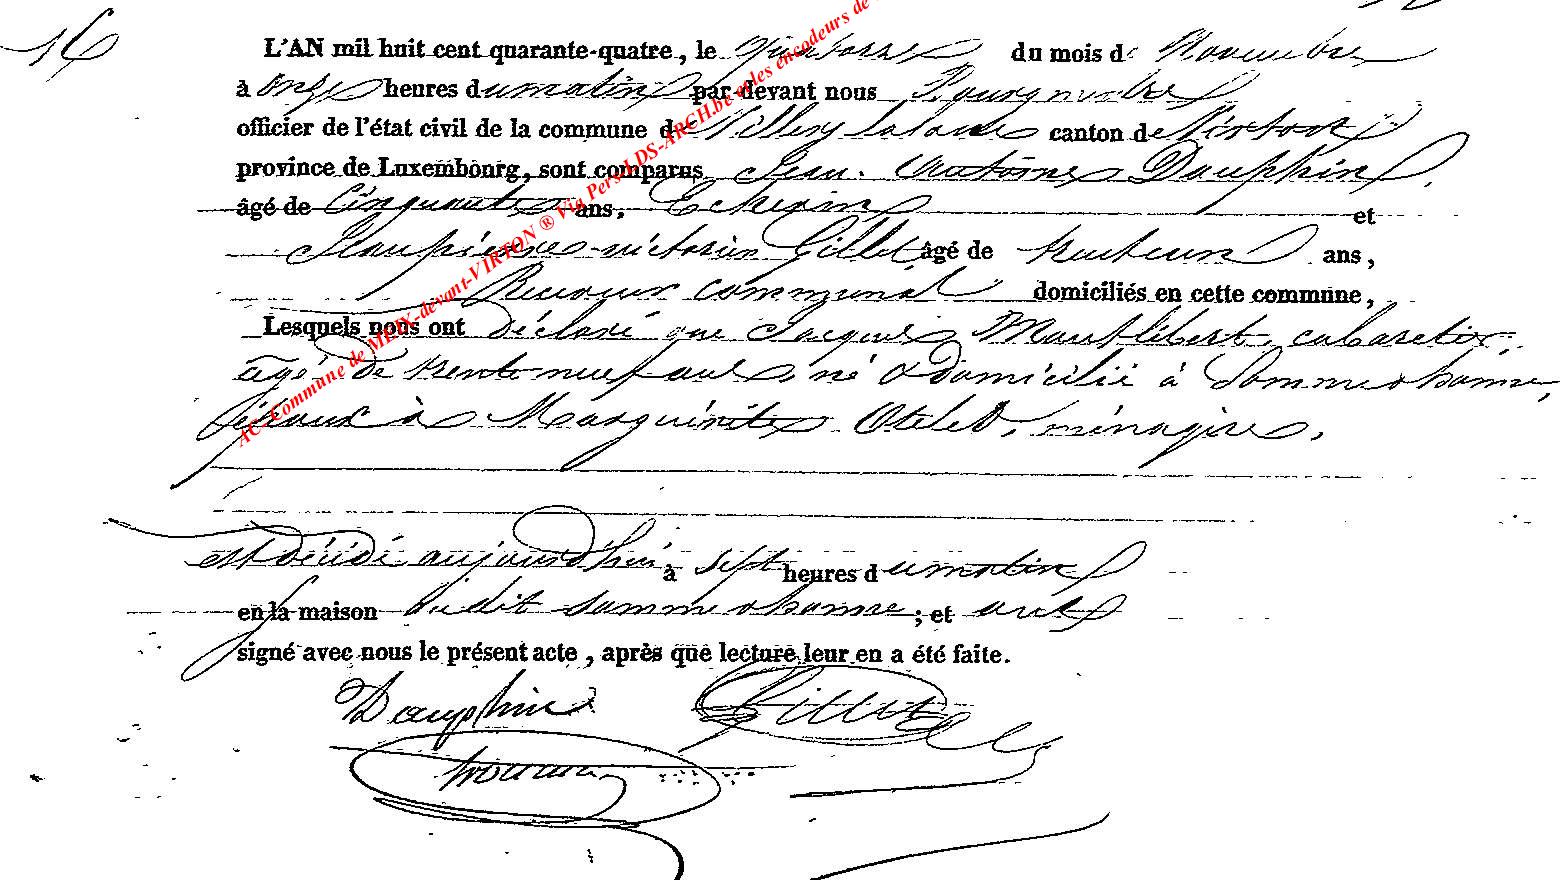 16
L'AN mil huit cent quarante-quatre, le quatorze du mois de Novembre
à onze heures du matin par devant nous
officier de l'état civil de la commune de Villers la loue canton de Virton
province de Luxembourg, sont comparus Jean Antoine Dauphin,
âgé de Cinquante ans, Echevin et
Jean pierre victorin Gillet âgé de trente un ans,
Receveur communal domiciliés en cette commune,
Lesquels nous ont déclaré que Jacques Mantlibert, cabaretier,
agé de trente neuf ans, né & domicilié à Sommethonne,
époux à Marguerite Otelet, ménagère,
est décédé aujourd'hui à sept heures du matin
en la maison dudit Sommethonne; et ont
signé avec nous le présent acte, après que lecture leur en a été faite.
Dauphin Gillet
AC-Commune de MEIX-devant-VIRTON ® Via Pers LDS-ARCH.be et les encodeurs de